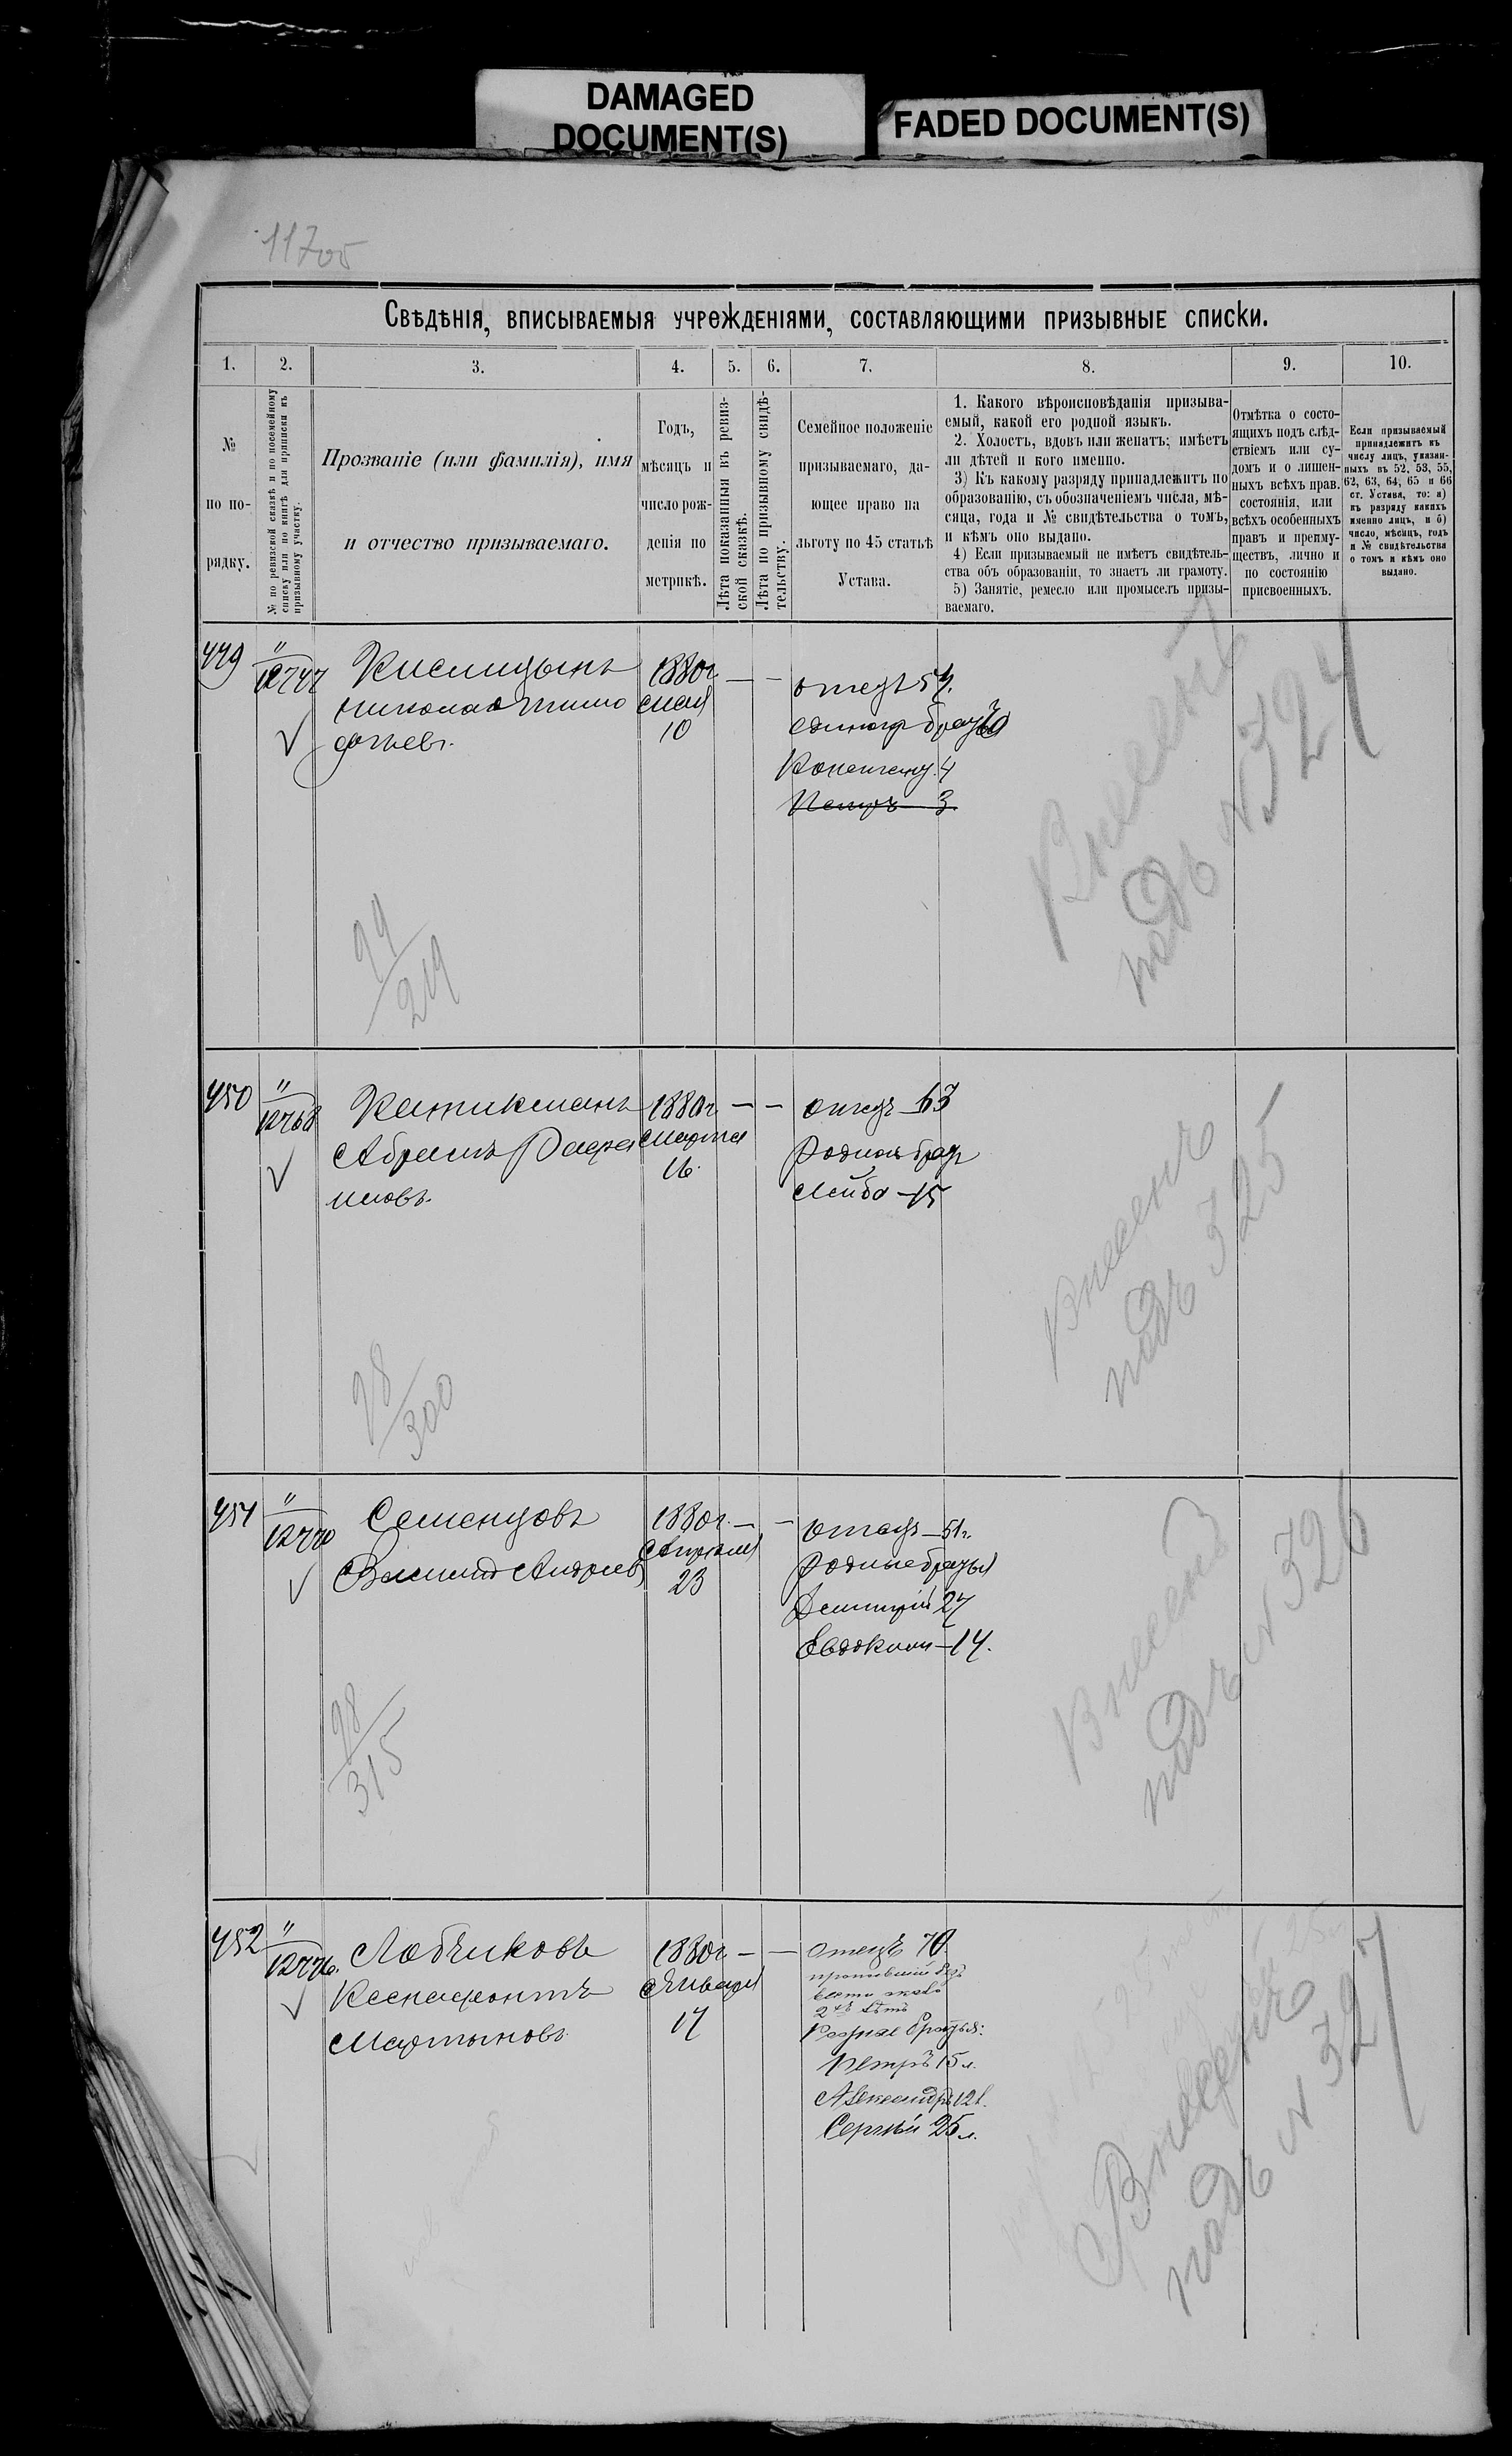 DAMAGED
DOCUMENT(S)
FADED DOCUMENT(S)
Свѣдѣнія, вписываемыя учрежденіями, составляющими призывные списки.
1.
2.
3.
4.
5.
6.
7.
8.
9.
10.
№
по по-
рядку.
№ по ревизской сказкѣ и по посемейному
списку или по книгѣ для приписки къ
призывному участку.
Прозваніе (или фамилія), имя
и отчество призываемаго.
Годъ,
мѣсяцъ и
число рож-
денія по
метрикѣ.
Лѣта показанныя въ ревиз-
ской сказкѣ.
Лѣта по призывному свидѣ-
тельству.
Семейное положеніе
призываемаго, да-
ющее право на
льготу по 45 статьѣ
Устава.
1. Какого вѣроисповѣданія призыва-
емый, какой его родной языкъ.
2. Холостъ, вдовъ или женатъ; имѣетъ
ли дѣтей и кого именно.
3) Къ какому разряду принадлежитъ по
образованію, съ обозначеніемъ числа, мѣ-
сяца, года и № свидѣтельства о томъ,
и кѣмъ оно выдано.
4) Если призываемый не имѣетъ свидѣтель-
ства объ образованіи, то знаетъ ли грамоту.
5) Занятіе, ремесло или промыселъ призы-
ваемаго.
Отмѣтка о состо-
ящихъ подъ слѣд-
ствіемъ или су-
домъ и о лишен-
ныхъ всѣхъ прав.
состоянія, или
всѣхъ особенныхъ
правъ и преиму-
ществъ, лично и
по состоянію
присвоенныхъ.
Если призываемый
принадлежитъ къ
числу лицъ, указан-
ныхъ въ 52, 53, 55,
62, 63, 64, 65 и 66
ст. Устава, то: а)
къ разряду какихъ
именно лицъ, и б)
число, мѣсяцъ, годъ
и № свидѣтельства
о томъ и кѣмъ оно
выдано.
449
"
12747
Кислицынъ
Николай Тимо
фѣевъ.
1880г
Мая
10
— —
отецъ 57.
Петръ 3.
Внесенъ
подъ № 324
99
219
450
"
12768
Кетикманъ
Абрамъ Рафа
иловъ.
1880г
Марта
16.
— —
отецъ 63
Родной братъ
Лейба — 15
Внесенъ
подъ 325
98
300
451
"
12770
Семенцовъ
Василій Андреев
1880г.
Апрѣля
23
— —
отецъ — 51г.
Родные братья
Дмитрій 27
Евдоким — 14.
Внесенъ
подъ № 326
98
315
452
"
12776.
Лобчиковъ
Ксенофонтъ
Мартыновъ.
1880г.
Января
17
— —
отецъ 70
Родные братья:
Петръ 15 л.
Александръ 12 л.
Сергѣй 25 л.
Внесенъ
подъ № 327